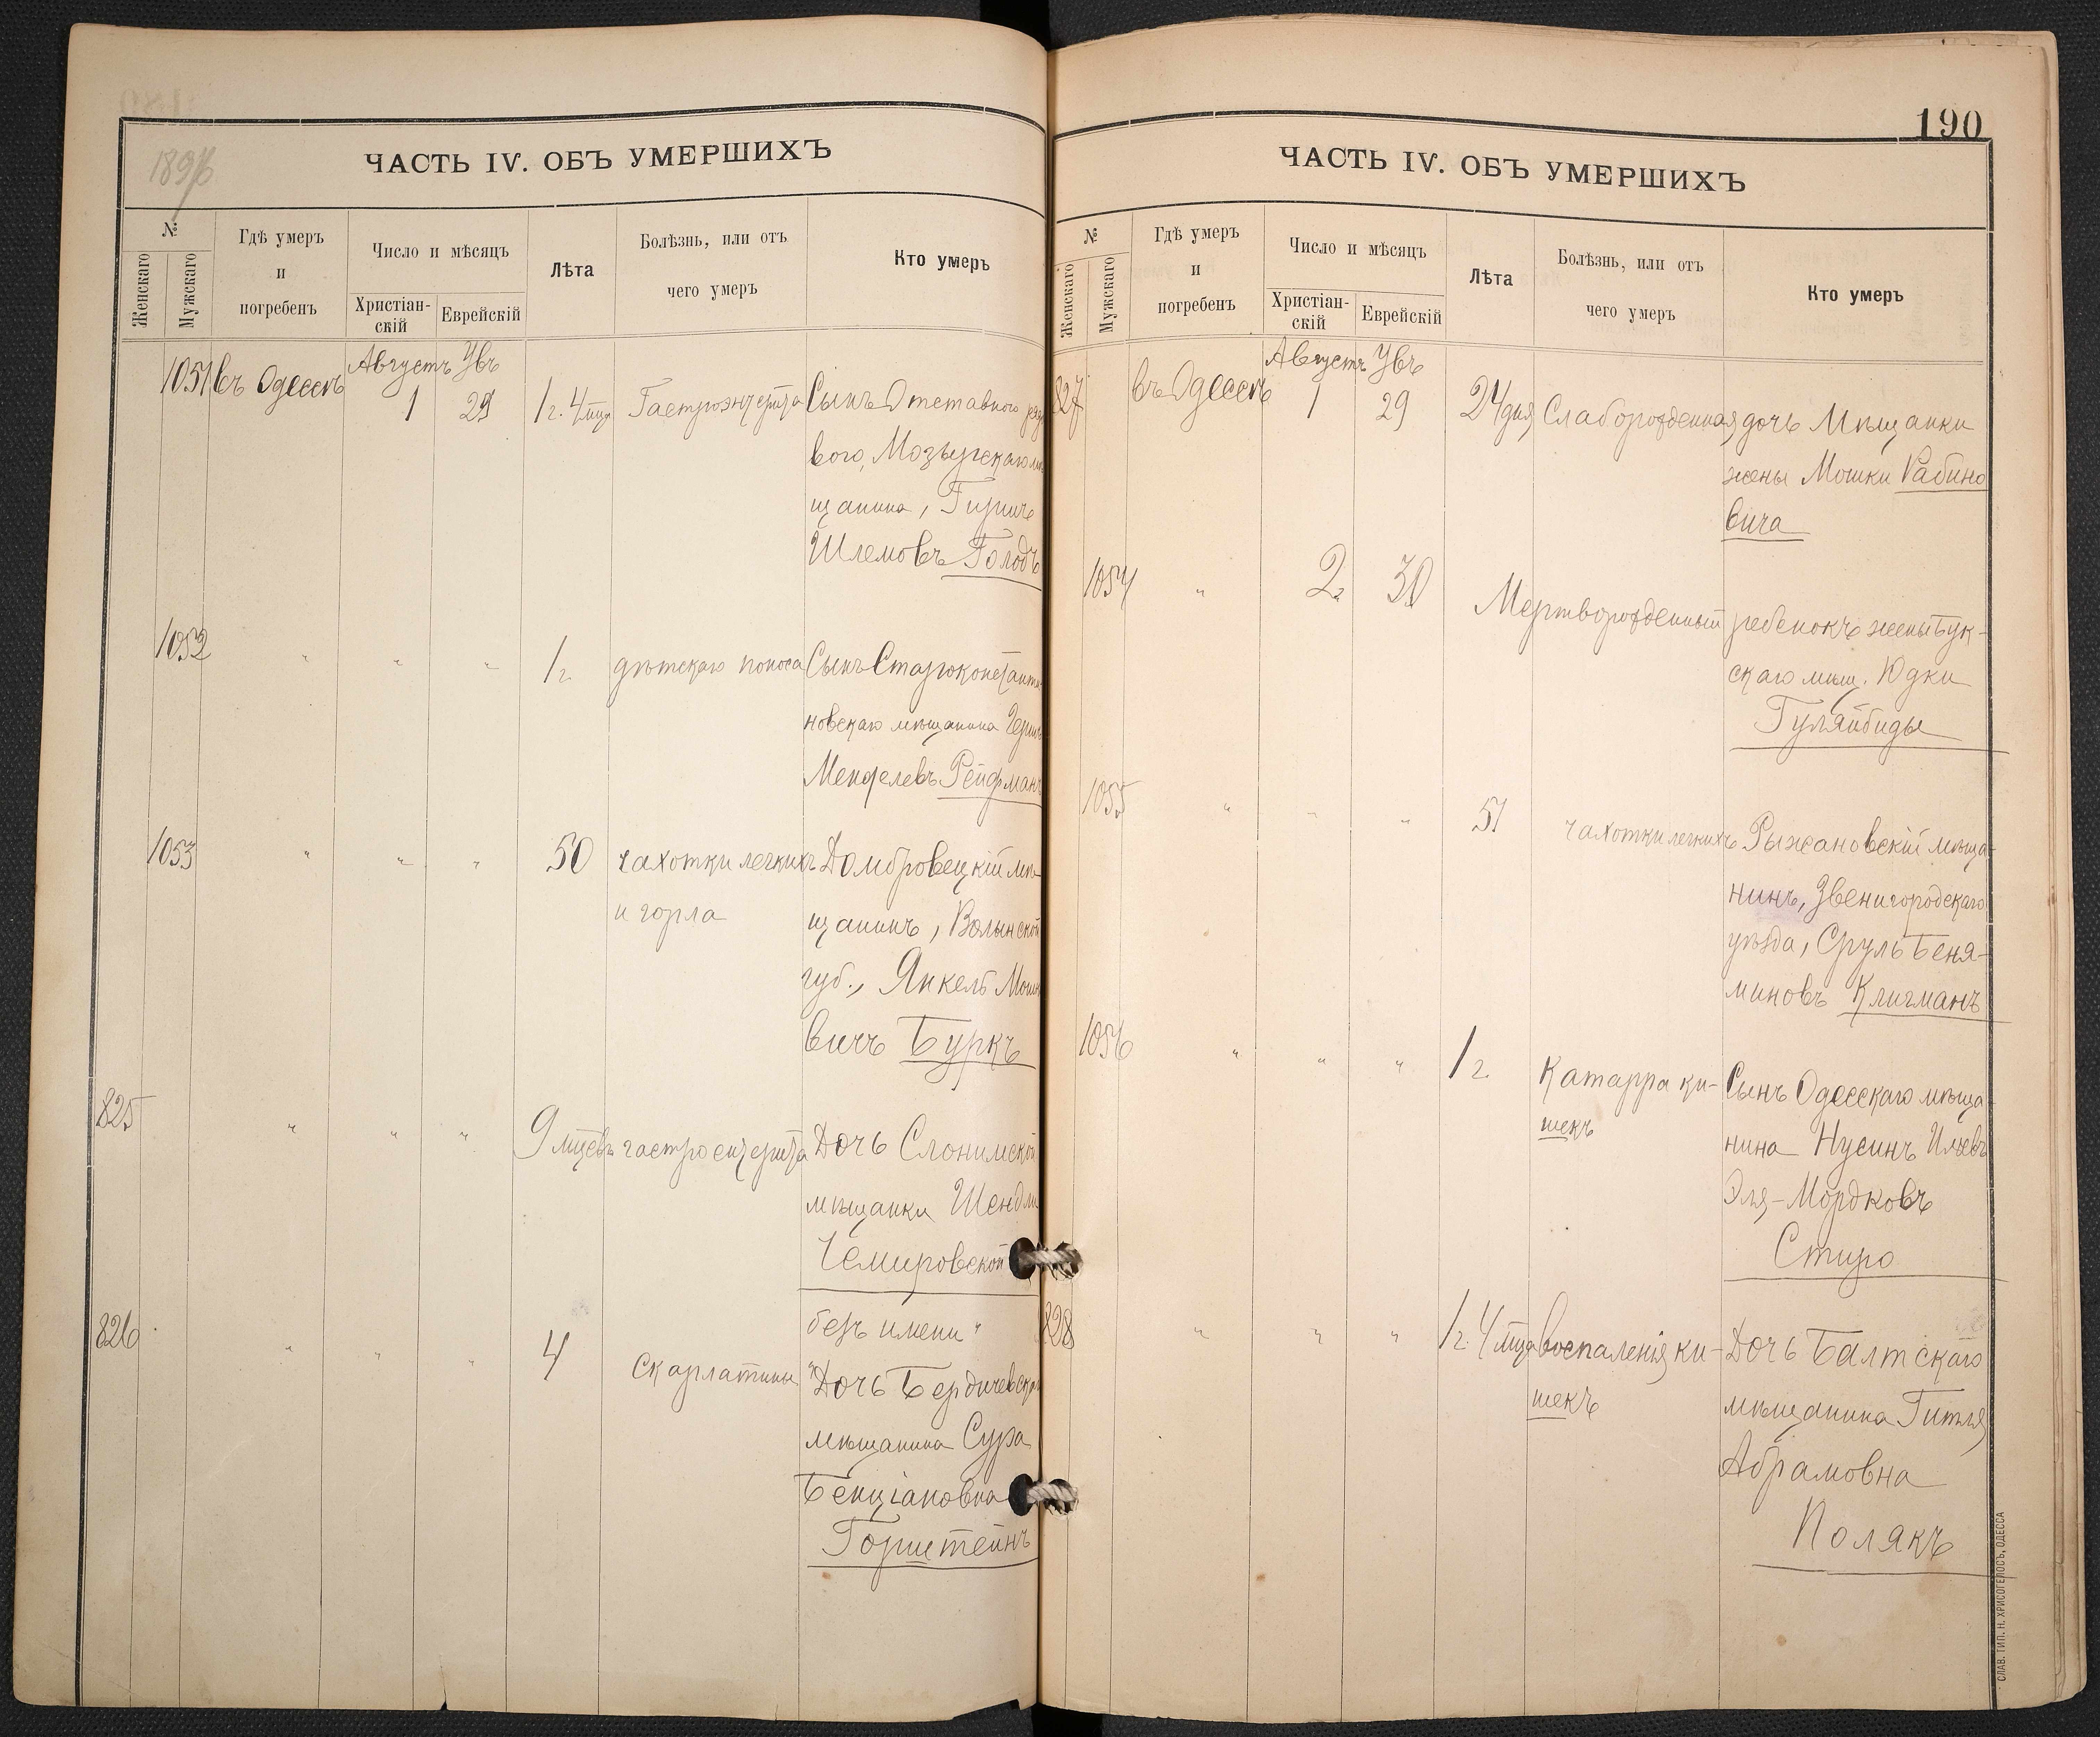 1896
ЧАСТЬ IV. ОБЪ УМЕРШИХЪ
№
Женскаго
Мужскаго
Гдѣ умеръ
и
погребенъ
Число и мѣсяцъ
Христіан-
скій
Еврейскій
Лѣта
Болѣзнь, или отъ
чего умеръ
Кто умеръ
Августъ Увъ
1051 въ Одессѣ 1 29 1 г. 4 мца Гастроэнтерита Сынъ Отставного рядо
вого, Мозырскаго мѣ
щанина, Гиршъ
Шлемовъ Голодъ
1052 " " " 1 г. дѣтскаго поноса Сынъ Староконстанти
новскаго мѣщанина Герш
Менделевъ Рейфманъ
1053 " " " 50 чахотки легкихъ Домбровецкій мѣ
и горла щанинъ, Волынской
губ., Янкель Мошко
вичъ Буркъ
825 " " " 9 мцевъ гастроентерита Дочь Слонимской
мѣщанки Шендли
Чемеровской
без имени "
826 " " " 4 Скарлатины Дочь Бердичевскаго
мѣщанина Сура
Бенціановна
Горштейнъ
190
ЧАСТЬ IV. ОБЪ УМЕРШИХЪ
№
Женскаго
Мужскаго
Гдѣ умеръ
и
погребенъ
Число и мѣсяцъ
Христіан-
скій
Еврейскій
Лѣта
Болѣзнь, или отъ
чего умеръ
Кто умеръ
Августъ Увъ
827 въ Одессѣ 1 29 24 дня Слаборожденная дочь Мѣщанки
жены Мошки Рабино
вича
1054 " 2 30 Мертворожденный ребенокъ жены Бук-
скаго мѣщ. Юдки
Гуляйбиды
1055 " " " 51 чахотки легкихъ Рыжановскій мѣща-
нинъ, Звенигородскаго
уѣзда, Сруль Беня-
миновъ Клигманъ
1056 " " " 1 г. Катарра ки- Сынъ Одесскаго мѣща-
шекъ нина Нусинъ Ицевъ
Эля-Мордковъ
Стиро
828 " " " 1 г. 4 мца воспаленія ки- Дочь Балтскаго
шекъ мѣщанина Гитля
Абрамовна
Полякъ
СЛАВ. ТИП. Н. ХРИСОГЕЛОСЪ, ОДЕССА